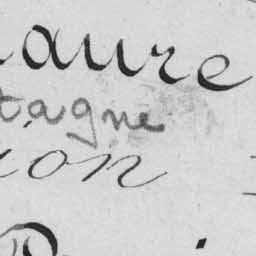 aure
tagne
ion